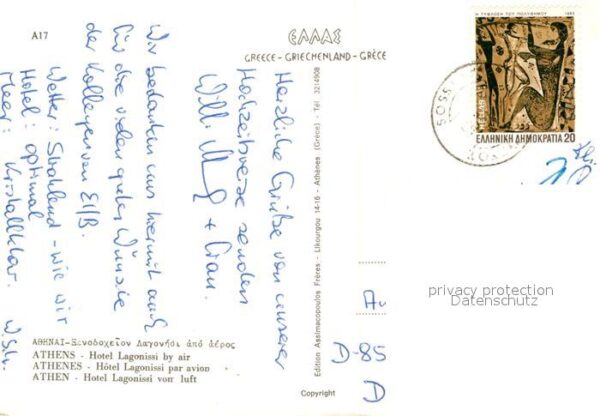 A17
ΕΛΛΑΣ
GREECE - GRIECHENLAND - GRÈCE
Η ΤΥΦΛΩΣΗ ΤΟΥ ΠΟΛΥΦΗΜΟΥ 1983
ΕΛΛΑΣ
ΕΛΛΗΝΙΚΗ ΔΗΜΟΚΡΑΤΙΑ 20
Herzliche Grüße von unserer
Hochzeitsreise senden
Willi + Frau.
Wir bedanken uns hiermit auch
für die vielen guten Wünsche
der Kollegen von
Wetter: Strahlend - wie wir
Hotel: optimal
Meer: Kristallklar.
W.Sch.
Edition Assimacopoulos Frères - Likourgou 14-16 - Athènes (Grèce) - Tél. 3214908
D-85
D
privacy protection
Datenschutz
ΑΘΗΝΑΙ-Ξενοδοχεῖον Λαγονήσι ἀπό ἀέρος
ATHENS - Hotel Lagonissi by air
ATHENES - Hôtel Lagonissi par avion
ATHEN - Hotel Lagonissi vom luft
Copyright